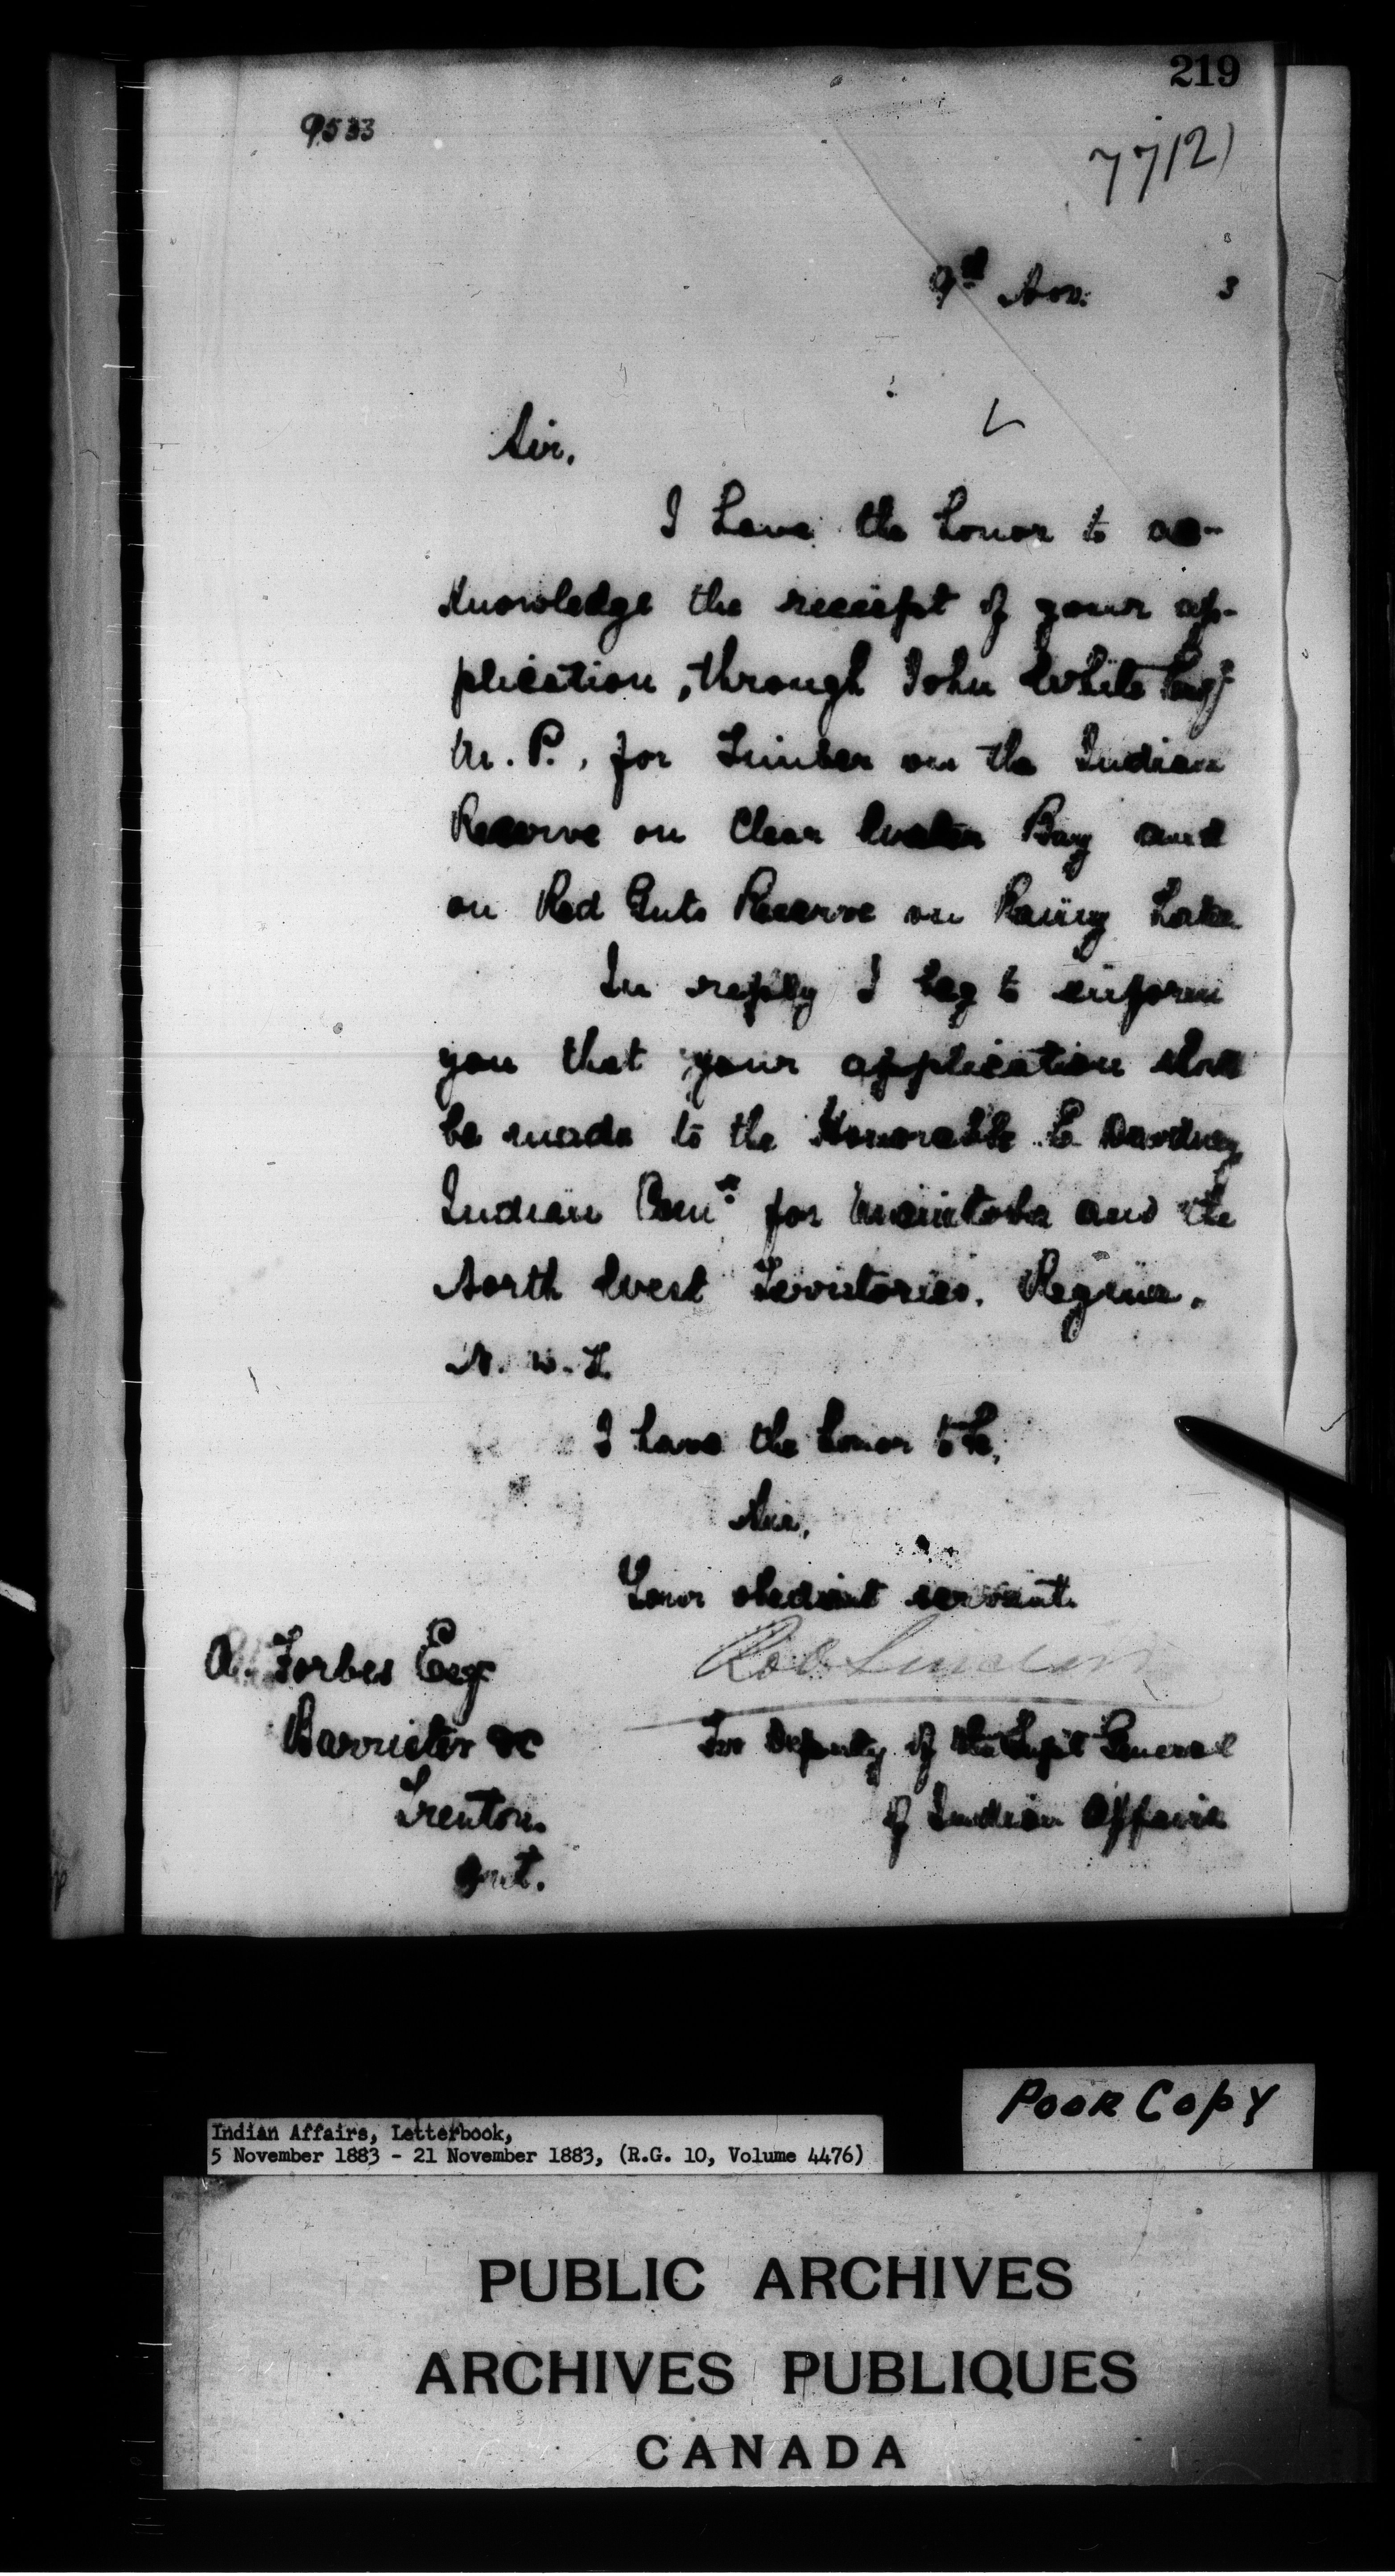 219
9533
7712)
9th Nov. 3
Sir,
I have the honor to ac-
knowledge the receipt of your ap-
plication, through John White Esq
M.P., for Timber on the Indian
Reserve on Clear Water Bay and
on Red Guts Reserve on Rainy Lake
In reply I beg to inform
you that your application should
be made to the Honorable E Dewdney
Indian Comr for Manitoba and the
North West Territories. Regina.
N. W. T.
I have the honor to be,
Sir,
Your obedient servant.
Rob Sinclair
For Deputy of the Supt General
of Indian Affairs
Forbes Esq
Barrister &c
Trenton.
Ont.
POOR COPY
Indian Affairs, Letterbook,
5 November 1883 - 21 November 1883, (R.G. 10, Volume 4476)
PUBLIC ARCHIVES
ARCHIVES PUBLIQUES
CANADA